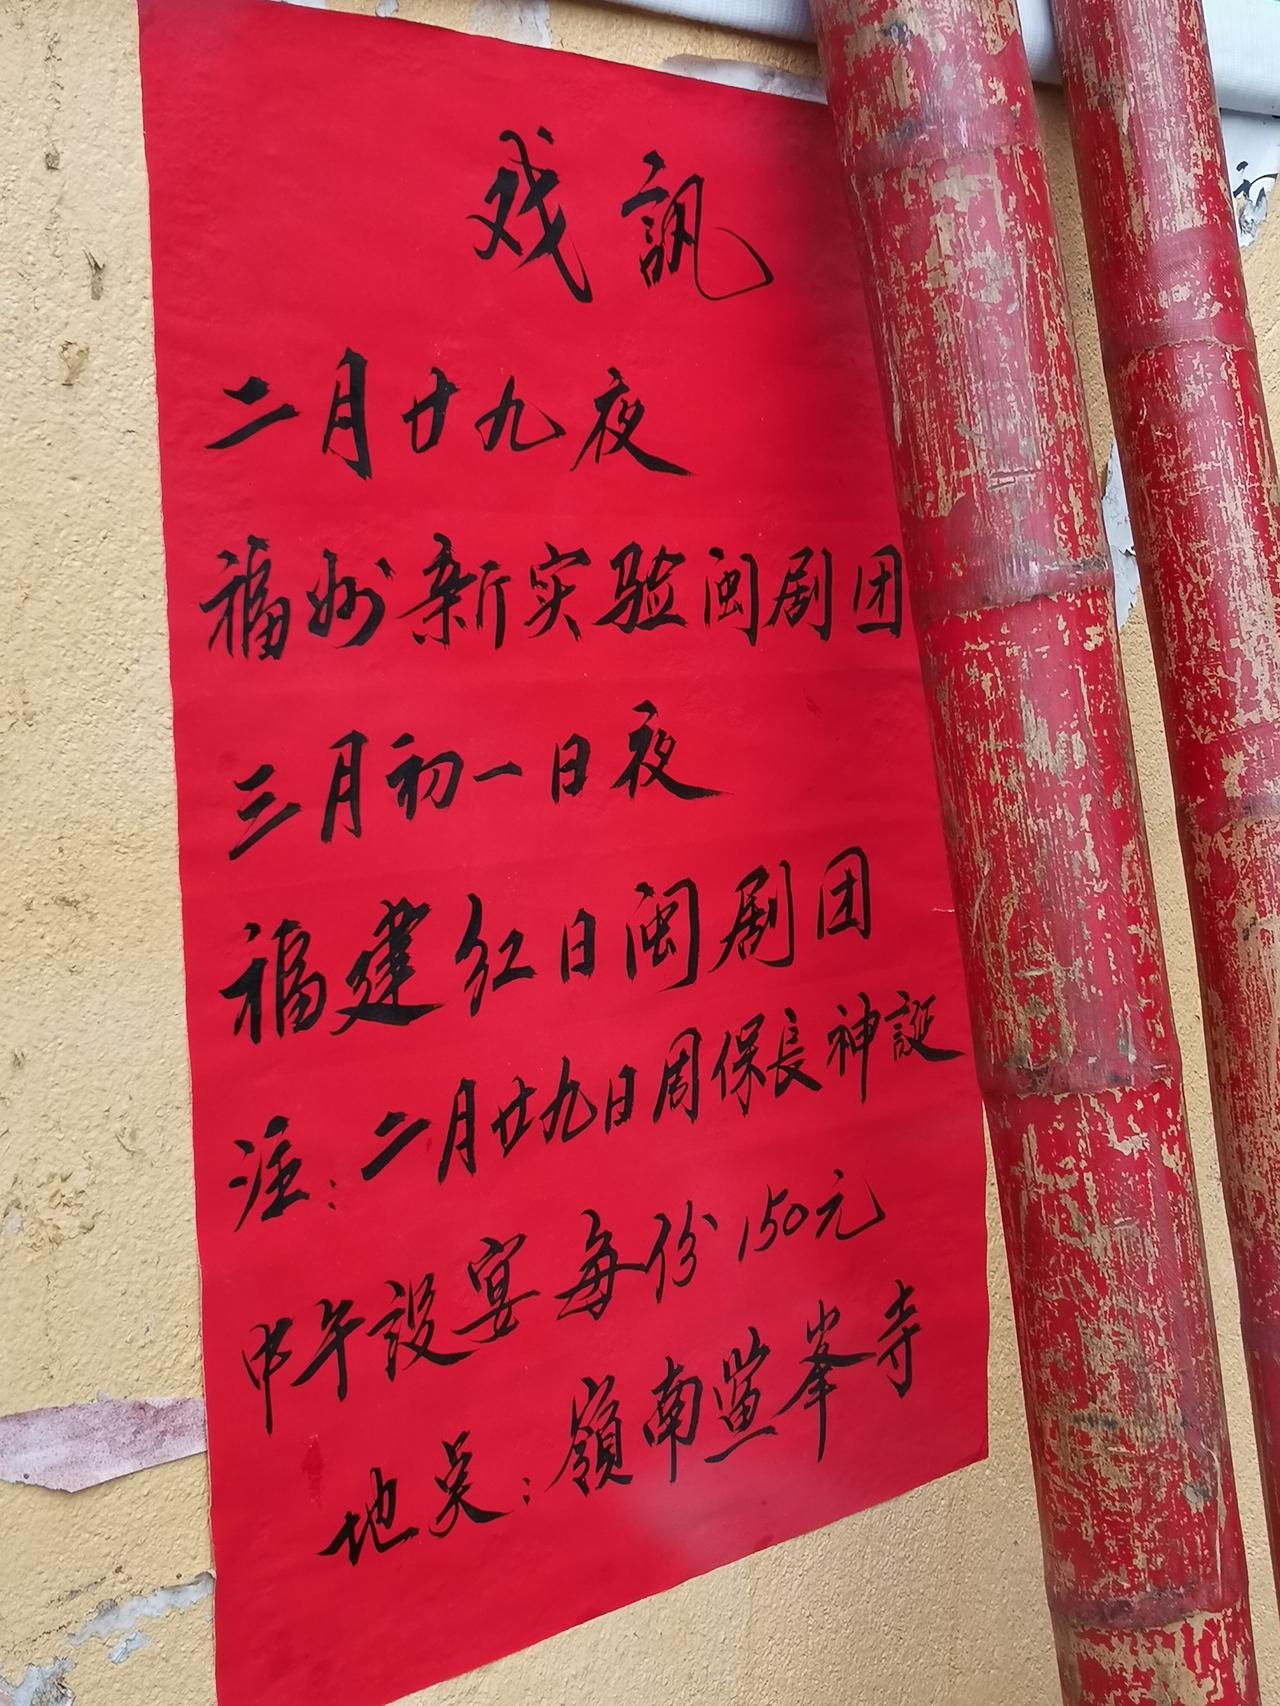 戏訊
二月廿九夜
福州新实验闽剧团
三月初一日夜
福建红日闽剧团
注：二月廿九日周保長神誕
中午設宴每份150元
地点：嶺南鲎峯寺